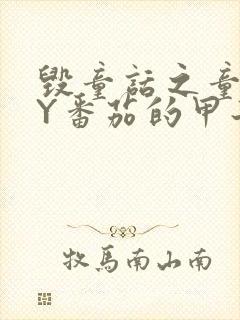 毁童话之童
Y番茄的甲
牧马南山南